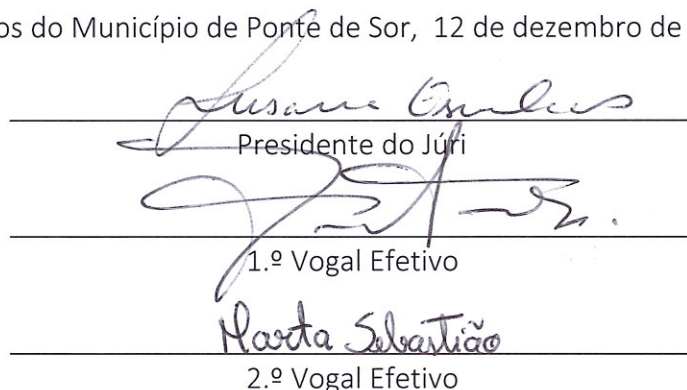 os do Município de Ponte de Sor, 12 de dezembro de
Susana
Presidente do Júri
1.º Vogal Efetivo
Marta Sebastião
2.º Vogal Efetivo